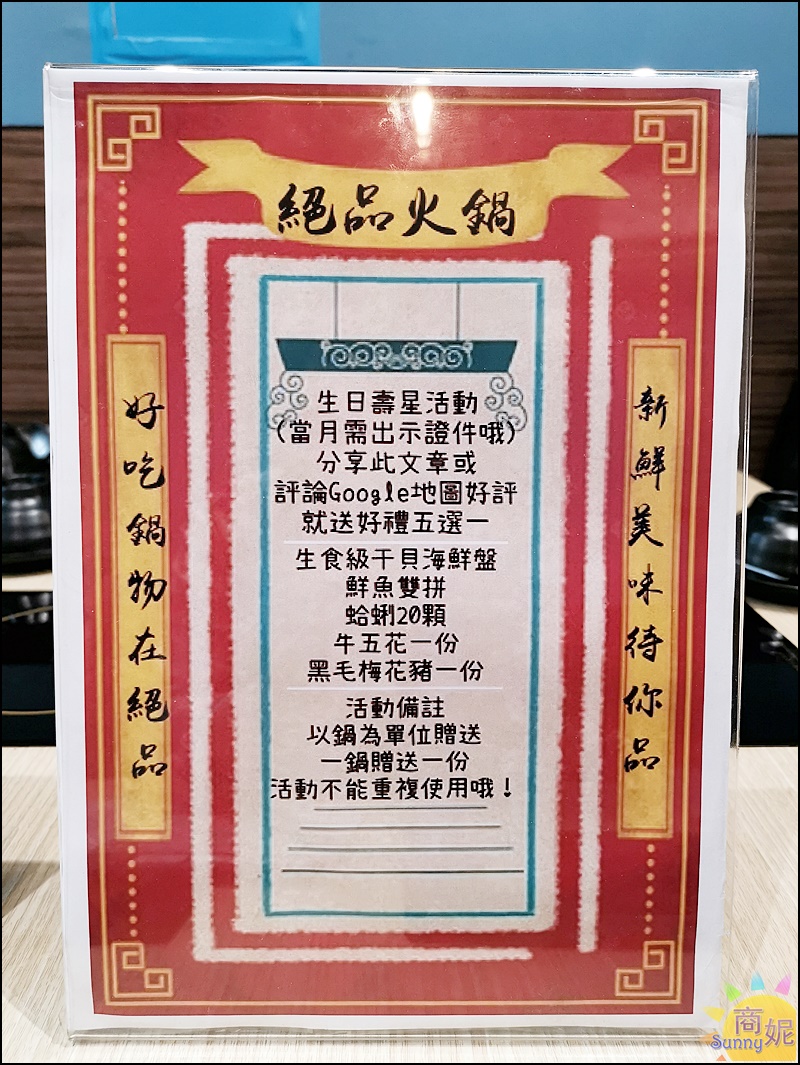 絕品火鍋
新鮮美味待你品
好吃鍋物在絕品
生日壽星活動
(當月需出示證件哦)
分享此文章或
評論Google地圖好評
就送好禮五選一
生食級干貝海鮮盤
鮮魚雙拼
蛤蜊20顆
牛五花一份
黑毛梅花豬一份
活動備註
以鍋為單位贈送
一鍋贈送一份
活動不能重複使用哦！
商妮
Sunny